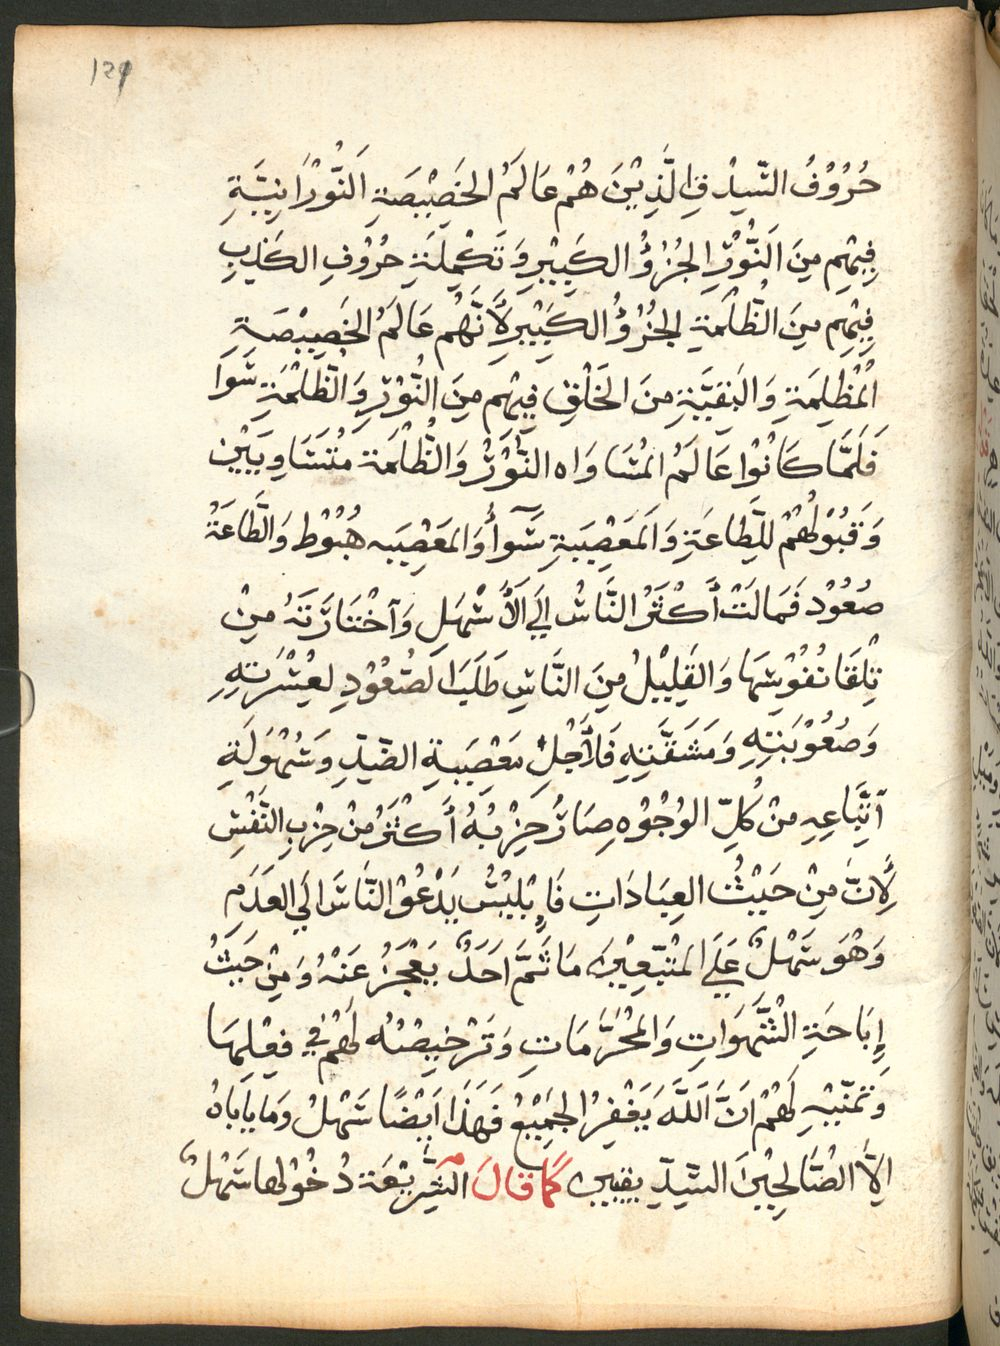 129
حُرُوْفُ السِّدْقِ الَّذِيْنَ هُمْ عَالَمُ الخَصِيْصَةِ اَلنُّوْرَانِيَّةِ
فِيْهِم مِنَ اَلنُّوْرِ الجُزْؤُ الكَبِيْرِ وَتَكْمِلَةِ حُرُوْفِ الكَذِبِ
فِيْهِم مِنَ الظُّلْمَةِ الجُزْؤُ الكَبِيْرِ لأَنَّهُم عَالَمُ الخَصِيْصَةِ
اْلمُظْلِمَةِ وَالبَقِيَّةِ مِنَ الخَلْقِ فِيْهِم مِنَ النُّوْرِ وَالظُّلْمَةِ سَوَا
فَلَمَّا كَانُوْا عَالَمُ المُسَاوَاه النُّوْرْ وَالظُّلْمَة مُتَسَاوِيَيْن
وَقُبُوْلُهُمْ لِلطَّاعَةِ وَاَلمَعَصِيَةِ سَوآًٔ وَالمَعْصِيَه هُبُوْط وَالطَّاعَةْ
صُعُوْد فَمَالَتْ أَكْثَرُ النَّاسْ اِلَي اَلأَسْهَلِ وَآخْتَارَتَهُ مِنْ
تِلْقَا نُفُوْسِهَا وَالقَلِيْلُ مِنَ النَّاسِ طَلَبَ الصُّعُوْدِ لِعُسْرَتِهِ
وَصُعُوْبَتِهِ وَمَشَقَّتِهِ فَلأَجْلِ مَعْصِيَةِ الضِّدِّ وَسُهُوْلَةِ
آتِّبَاعِهِ مِنْ كُلِّ الوُجُوْه صَارَ حِزْبُهُ أَكْثَرُ مِنْ حِزْبِ النَّفْسِ
لأَِنَّ مِنْ حَيْثُ العِبَادَاتِ فَإِبْلِيْسُ يَدْعُوْ النَّاسَ اِلَي العَدَمِ
وَهْوَ سَهْلٌ عَلَي المُتَّبِعِيْنَ مَا ثَمَّ اَحَدٌ يَعْجَزُ عَنْهُ وَمِنْ حَيْثُ
إِبَاحَةِ الْشَّهَوَاتِ وَالمُحْرَّمَاتِ وَتَرْخِيْصُهُ لَهُمْ فِي فِعْلِهَا
وَتَمَنِّيْهِ لَهُمْ اَنَّ اَللَّهَ يَغْفِرُ الجَمِيْعْ فَهَذَا اَيْضًا سَهْلْ وَمَا يَابَاهُ
اِلاَّ الصَّالِحِيْنَ السَّيِّدِيْقِيِيْن كَمَا قَالَ الشَّرِيْعَة دُخُوْلها سَهْلٌ